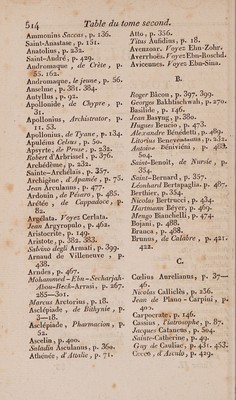 514 Table du tome second.
Ammonius Saccas, p. 136.
Saint-Anastase, p. 151.
Anatolius, p. 232.
Saint-André, p. 429.
Andromaque, de Crète, p.
55. 162.
Andromaque, le jeune, p. 56.
Anselme, p. 381. 384.
Antyllus, p. 92.
Apollonide, de Chypre, p.
31.
Apollonius, Archistrator, p.
11. 53.
Apollonius, de Tyane, p. 134.
Apuléius Celsus, p. 50.
Apsyrte, de Pruse, p. 232.
Robert d'Arbrissel, p. 376.
Archédème, p. 232.
Sainte-Archélais, p. 357.
Archigène, d'Apamée, p. 75.
Jean Arculanus, p. 479.
Ardouin, de Pésaro, p. 485.
Arétée, de Cappadoce, p.
82.
Argelata. Voyez Cerlata.
Jean Argyropylo, p. 462.
Aristocrite, p. 149.
Aristote, p. 382. 383.
Salvino degli Armati, p. 399.
Arnaud de Villeneuve, p.
438.
Arudes, p. 467.
Mohammed-Ebn-Secharjah-
Abou-Bech-Arrusi, p. 267.
285—301.
Marcus Arctorius, p. 18.
Asclépiade, de Bithynie, p.
3—18.
Asclépiade, Pharmacion, p.
52.
Ascelin, p. 400.
Saladin Asculanus, p. 360.
Athénée, d'Attalie, p. 71.
Atto, p. 356.
Titus Aufidius, p. 18.
Avenzoar. Voyez Ehn-Zohr.
Averrhoës. Voyez Ebn-Roschd.
Avicennes. Voyez Ebn-Sina.
B.
Roger Bâcon, p. 397. 399.
Georges Bakhtischwah, p. 270.
Basilide, p. 146.
Jean Basyng, p. 380.
Hugues Bencio, p. 473.
Alexandre Bénédetti, p. 489.
Litorius Beneventanus, p. 232.
Antoine Bénivieni, p. 488.
504.
Saint-Benoit, de Nursie, p.
354.
Saint-Bernard, p. 357.
Léonhard Bertapaglia, p. 487.
Berthier, p. 354.
Nicolas Bertrucci, p. 434.
Hartmann Béyer, p. 469.
Mengo Bianchelli, p. 474.
Bojani, p. 488.
Branca, p. 488.
Brunus, de Calâbre, p. 421.
423.
C.
Cœlius Aurelianus, p. 37—
46.
Nicolas Calliclès, p. 236.
Jean de Plano-Carpini, p.
400.
Carpocrate, p. 146.
Cassius, l'iatrosophe, p. 87.
Jacques Cataneus, p. 504.
Sainte-Catherine, p. 49.
Guy de Cauliac, p. 431. 453.
Cecco, d'Ascolo, p. 429.